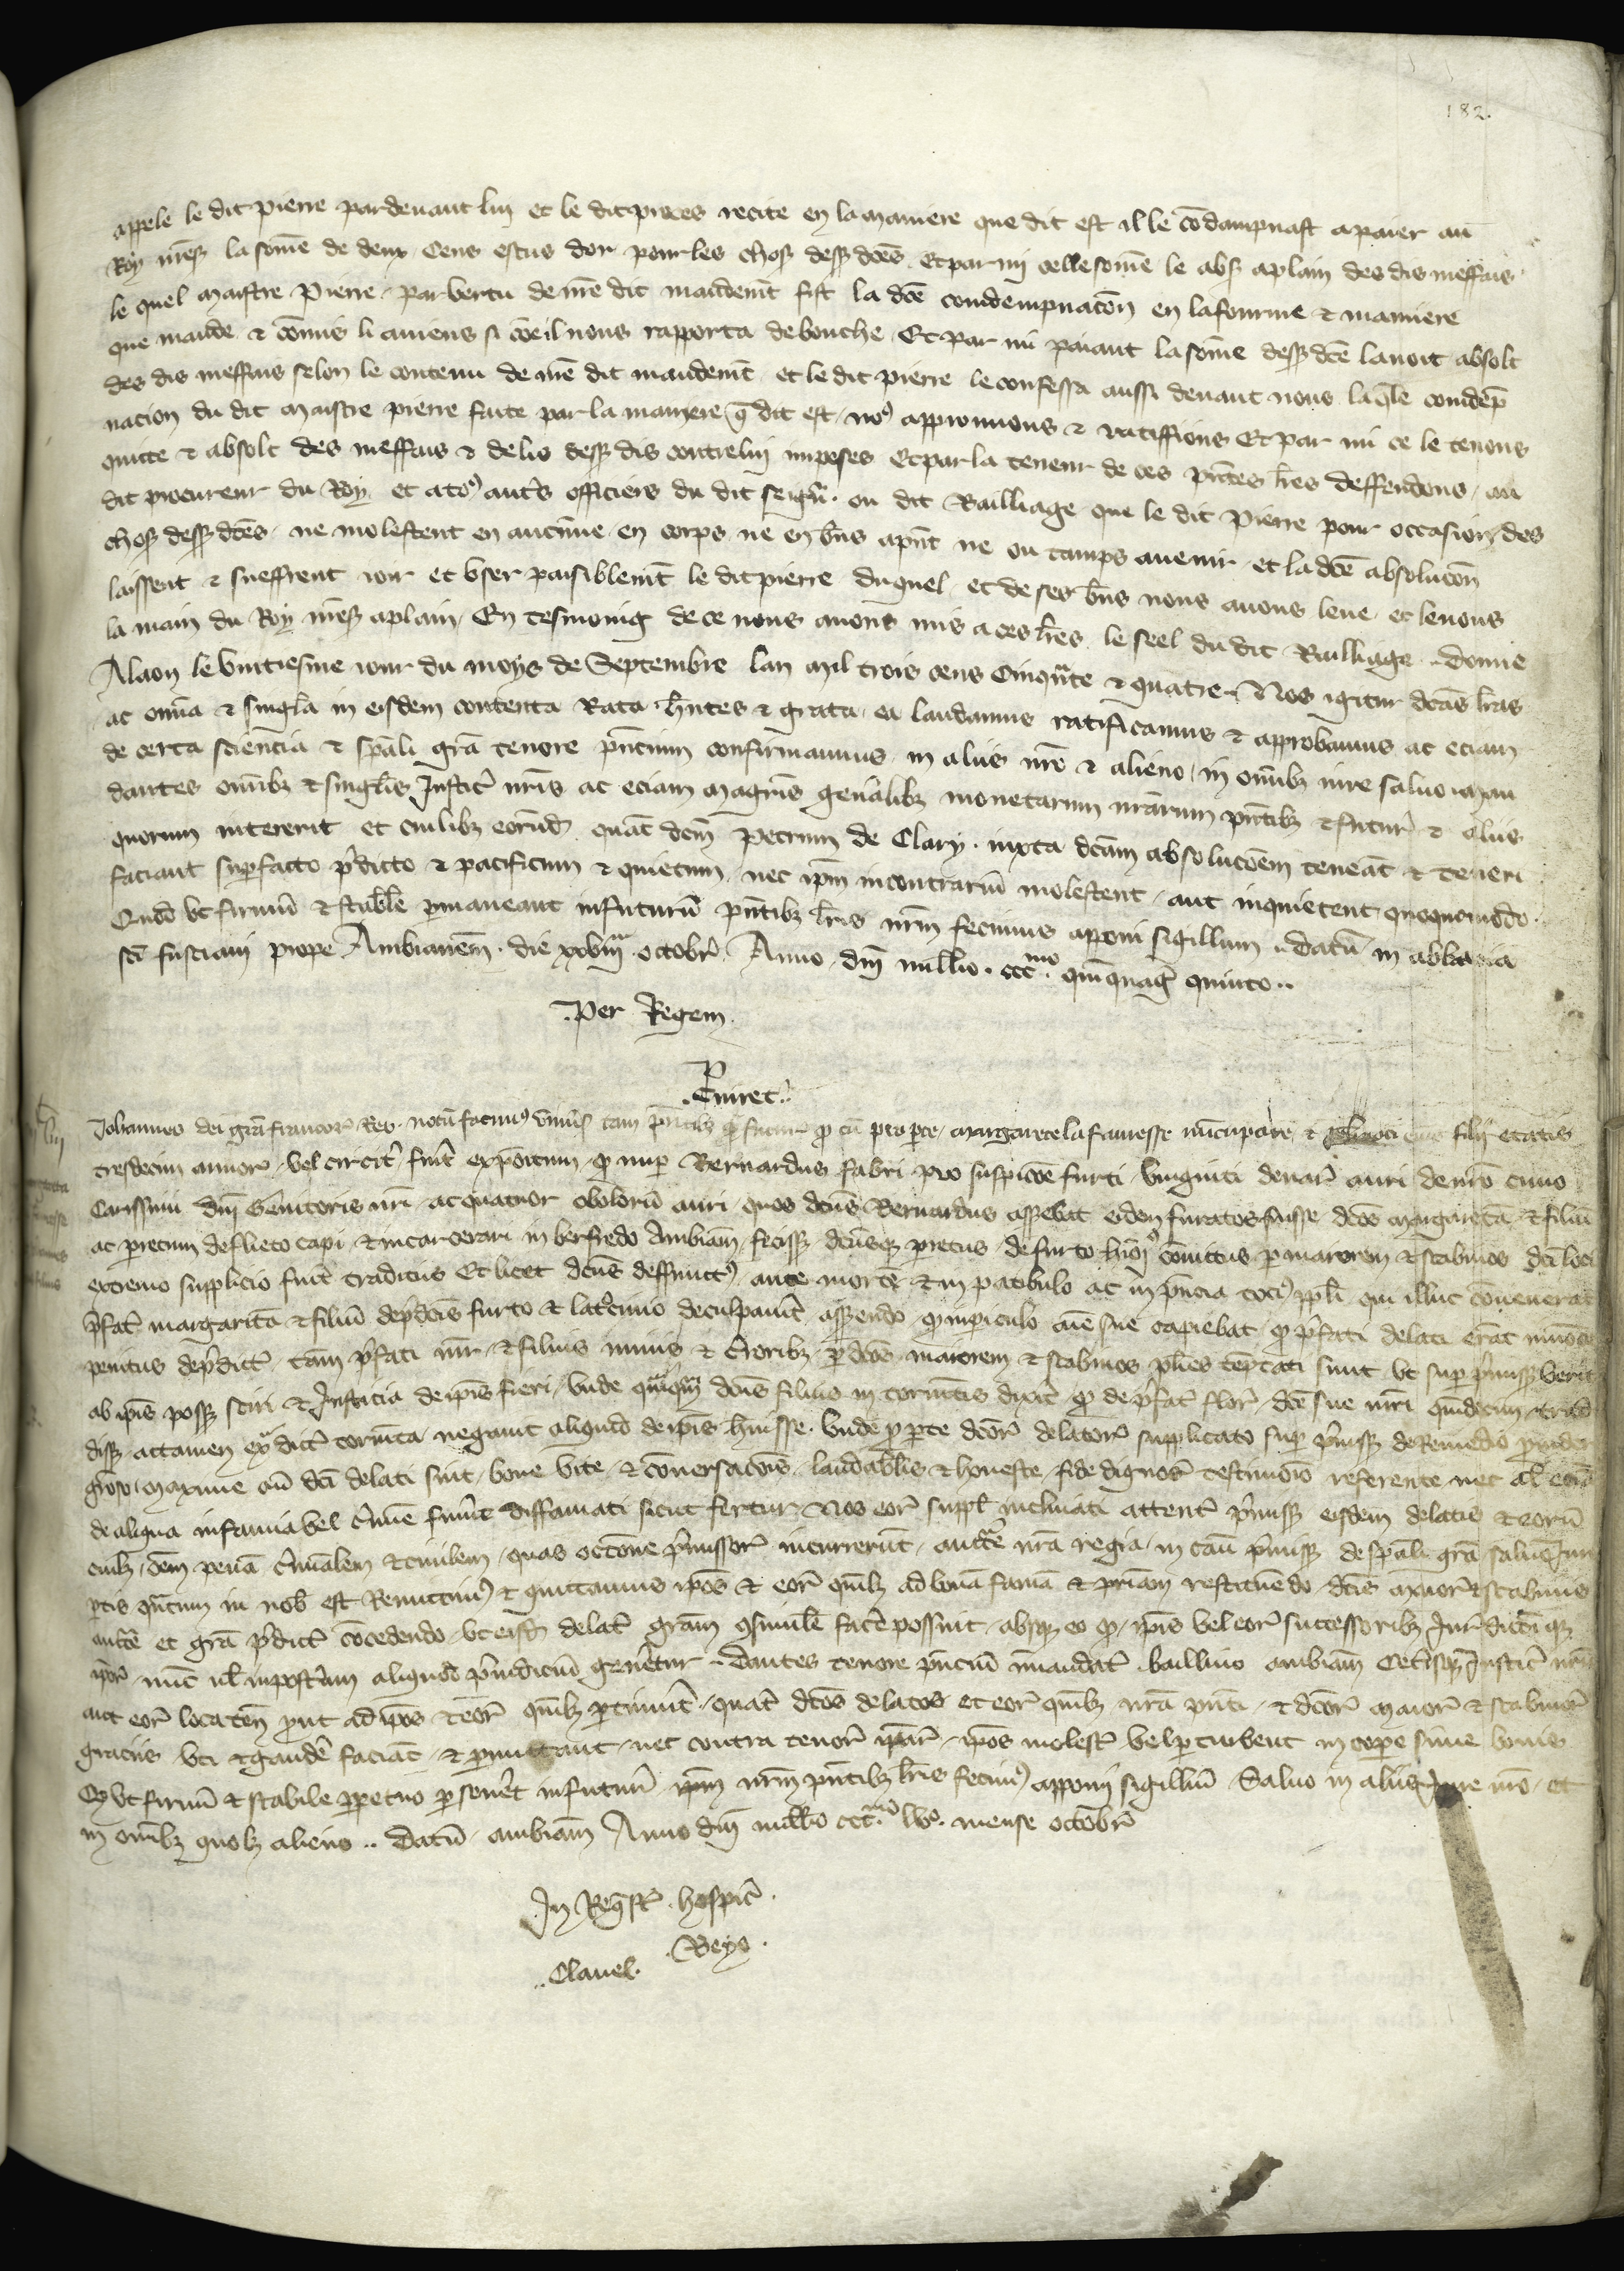 182.
appele le dit pierre pardevant luy et le dit proces recite en la maniere que dit est il le cōdampnast a paier au
Roy n̄r̄eß la som̄e de deux Cens escus dor pour les choß desß dc̄es Et par my celle som̄e le abß a plain des dis meffais
le quel maistre Pierre par vertu de n̄re dit mandem̄t fist la dc̄e condempnac̄on en la fourme & maniere
que mande & cōmis li aviens si cōe il nous rapporta de bouche Et par mi paiant la som̄e desß dc̄e lavoit absolt
des dis meffais selon le contenu de n̄re dit mandem̄t et le dit pierre le confessa aussi devant nous laq̄le condēp
nacion du dit maistre pierre faite par la maniere q̄ dit est no9 approuvons & ratiffions Et par mi ce le tenons
quitte & absolt des meffais & delis desß dis contre luy imposes Et par la teneur de ces p̄ntes lr̄es deffendons au
dit procureur du Roy et a to9 aut̄s officiers du dit seign̄r ou dit Bailliage que le dit Pierre pour occasion des
choß desß dc̄es ne molestent en aucune en corps ne en b̄ns a p̄nt ne ou tamps avenir et la dc̄e absoluc̄on
laissent & sueffrent ioir et user paisiblem̄t le dit pierre duquel et de ses b̄ns nous avons leve et levons
la main du Roy n̄r̄eß a plain En tesmoing de ce nous avons mis a ces lr̄es le seel du dit Bailliage donne
A laon le vintiesme iour du moys de Septembre lan mil trois cens Cinqn̄te & quatre Nos igitur dc̄as lr̄as
ac om̄ia & singl̄a in eisdem contenta Rata h̄ntes & grata ea laudamus ratificamus & approbamus ac eciam
de certa sciencia & sp̄ali gr̄a tenore p̄ncium confirmamus in aliis n̄ro & alieno in om̄ibȝ iure salvo man
dantes om̄ibȝ & singl̄is Iustic̄ n̄ris ac eciam magr̄is gen̄alibȝ monetarum n̄rarum p̄ntibȝ & futur̄ & aliis
quorum intererit et cuilibȝ eorūd quāt dc̄m Petrum de Clary iuxta dc̄am absoluc̄oem teneāt & teneri
faciant sup̄ facto p̄dicto & pacificum & quietum nec ip̄m in contrariū molestent aut inquietent quoquomodo
Quod ut firmū & stabl̄e p̄maneant in futurū p̄ntibȝ lr̄is n̄rm fecimus apponi sigillum Datū in abbatia
sc̄i fusciani prope Ambianen̄ die xxviii octobr̄ Anno dn̄i mill̄io cccmo quinquag̃ quinto
Per Regem
P̄. Cuiret
Iohannes dei gr̄a francor̄ Rex notū facim9 univ̄sß tam p̄ntibȝ q̄ futur̄ q̄ cū pro p̄te margarete la favesse nūcupate & eius filij etatis
tresdecim annor̄ vel circit̄ fuit̄ expōitum q̄ nup̄ Bernardus fabri pro suspic̄oe furti viginti denar̄ auri de n̄ro cuno
Carissimi dn̄i Genitoris n̄ri ac quatuor obolorū auri quos dc̄us Bernardus assebat eidem furatos fuisse dc̄os margaretā & filiū
ac petrum de flieto capi & incarcerari in berfredo Ambian̄ fecissß dc̄usqȝ petrus de furto hm̄oi convictus p̄ maiorem & scabinos dc̄i loci
extremo supplicio fuit̄ traditus Et licet dc̄us deffunct9 ante mortē & in patibulo ac in p̄ncia toci9 ppl̄i qui illuc convenerat
p̄fat̄ margaritā & filiū de p̄dc̄is furto & lat̄cinio deculpavit̄ asßendo q̄ in periculo aīe sue capiebat q̄ p̄fati delati erāt
penitus de p̄dict̄ tam̄ p̄fati mr̄ & filius nimis & c̄rioribȝ p̄ dc̄os maiorem & scabinos pl̄ies tēptati sunt ut sup̄ p̄missß verit̄
ab ip̄is possß sciri & Iusticia de ip̄is fieri unde dc̄us filius in tormētis dixit̄ q̄ de p̄fat̄ flor̄ dc̄e sue mr̄i quidecim
dissß attamen ex̄ dict̄ tormta negavit aliquid de ip̄is h̄uisse Unde p̄ p̄te dc̄or̄ delator̄ supplicato sup̄ p̄missß de Remedio
gr̄oso maxime cū dc̄i delati sint bone vite & conversac̄ois laudabl̄is & honeste fide dignor̄ testimonio referente nec al̄
de aliqua infamia vel c̄rimīe fuīnt diffamati sicut fertur Nos eor̄ suppl̄ inclinati attent̄ p̄missß eisdem delatis & eorū
cuilȝ dēm penā c̄riminalem & civilem quas occ̄one p̄missor̄ incurrerūt auct̄e n̄ra regia in cāu p̄missß de sp̄ali gr̄a salvo Iur
p̄tis qn̄tum in nob̄ est Remittim9 & quittamus ip̄os & eor̄ qm̄lȝ ad bonā famā & p̄riam restituēdo dc̄is maior̄ & scabinis
auct̄e et gr̄a p̄dict̄ cōcedendo ut eisß delat̄ gr̄am 9simile fac̄e possint absqȝ eo q̄ ip̄is vel eor̄ successoribȝ
ip̄or̄ nūc vel in post̄um aliquod p̄iudiciū gen̄etur Dantes tenore p̄nciū in mandat̄ baillivo ambian̄ Cet̄isqȝ Iustic̄ n̄ris
aut eor̄ locaten̄ p̄ut ad ip̄os & eor̄ qm̄lȝ p̄tinuit̄ quat̄ dc̄os delatos et eor̄ qm̄lȝ n̄ra p̄nti & dc̄or̄ maior̄ & scabinor̄
graciis uti & gaudē faciāt & p̄mittant nec contra tenor̄ ip̄ar̄ ip̄os molest̄ vel p̄turbent in corp̄e sive bonis
Q̄ ut firmū & stabile p̄petuo p̄sev̄et in futurū n̄rm p̄ntibȝ lr̄is fecim9 apponi sigillū Salvo in aliis Iure n̄ro et
in om̄ibȝ quolȝ alieno Datū ambian̄ Anno dn̄i mill̄io cccmo lvo mense octobr̄
In Reqst̄ hospic̄
Clavel. Beys.